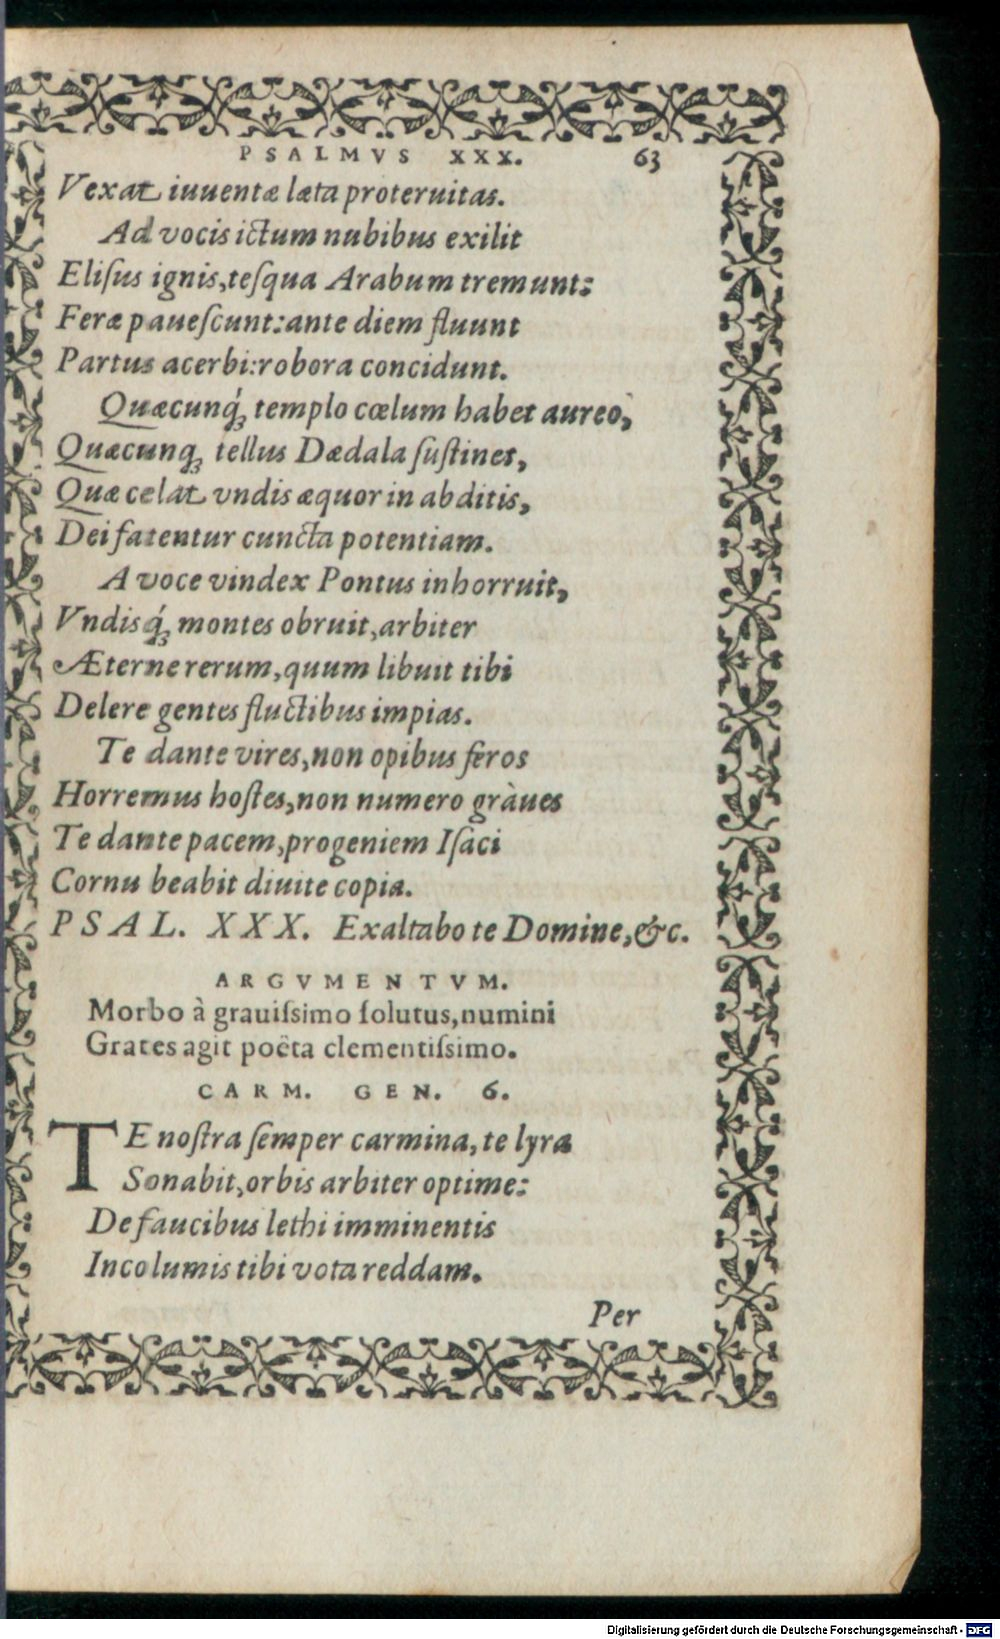 PSALMVS XXX. 63
Vexat iuuentæ læta proteruitas.
Ad vocis ictum nubibus exilit
Elisus ignis, tesqua Arabum tremunt:
Feræ pauescunt: ante diem fluunt
Partus acerbi: robora concidunt.
Quæcunq́; templo cœlum habet aureo,
Quæcunq; tellus Dædala sustinet,
Quæ celat vndis æquor in abditis,
Dei fatentur cuncta potentiam.
A voce vindex Pontus inhorruit,
Vndisq́; montes obruit, arbiter
Æterne rerum, quum libuit tibi
Delere gentes fluctibus impias.
Te dante vires, non opibus feros
Horremus hostes, non numero gràues
Te dante pacem, progeniem Isaci
Cornu beabit diuite copia.
PSAL. XXX. Exaltabo te Domine, &c.
ARGVMENTVM.
Morbo à grauissimo solutus, numini
Grates agit poëta clementissimo.
CARM. GEN. 6.
TE nostra semper carmina, te lyra
Sonabit, orbis arbiter optime:
De faucibus lethi imminentis
Incolumis tibi vota reddam.
Per
Digitalisierung gefördert durch die Deutsche Forschungsgemeinschaft - DFG